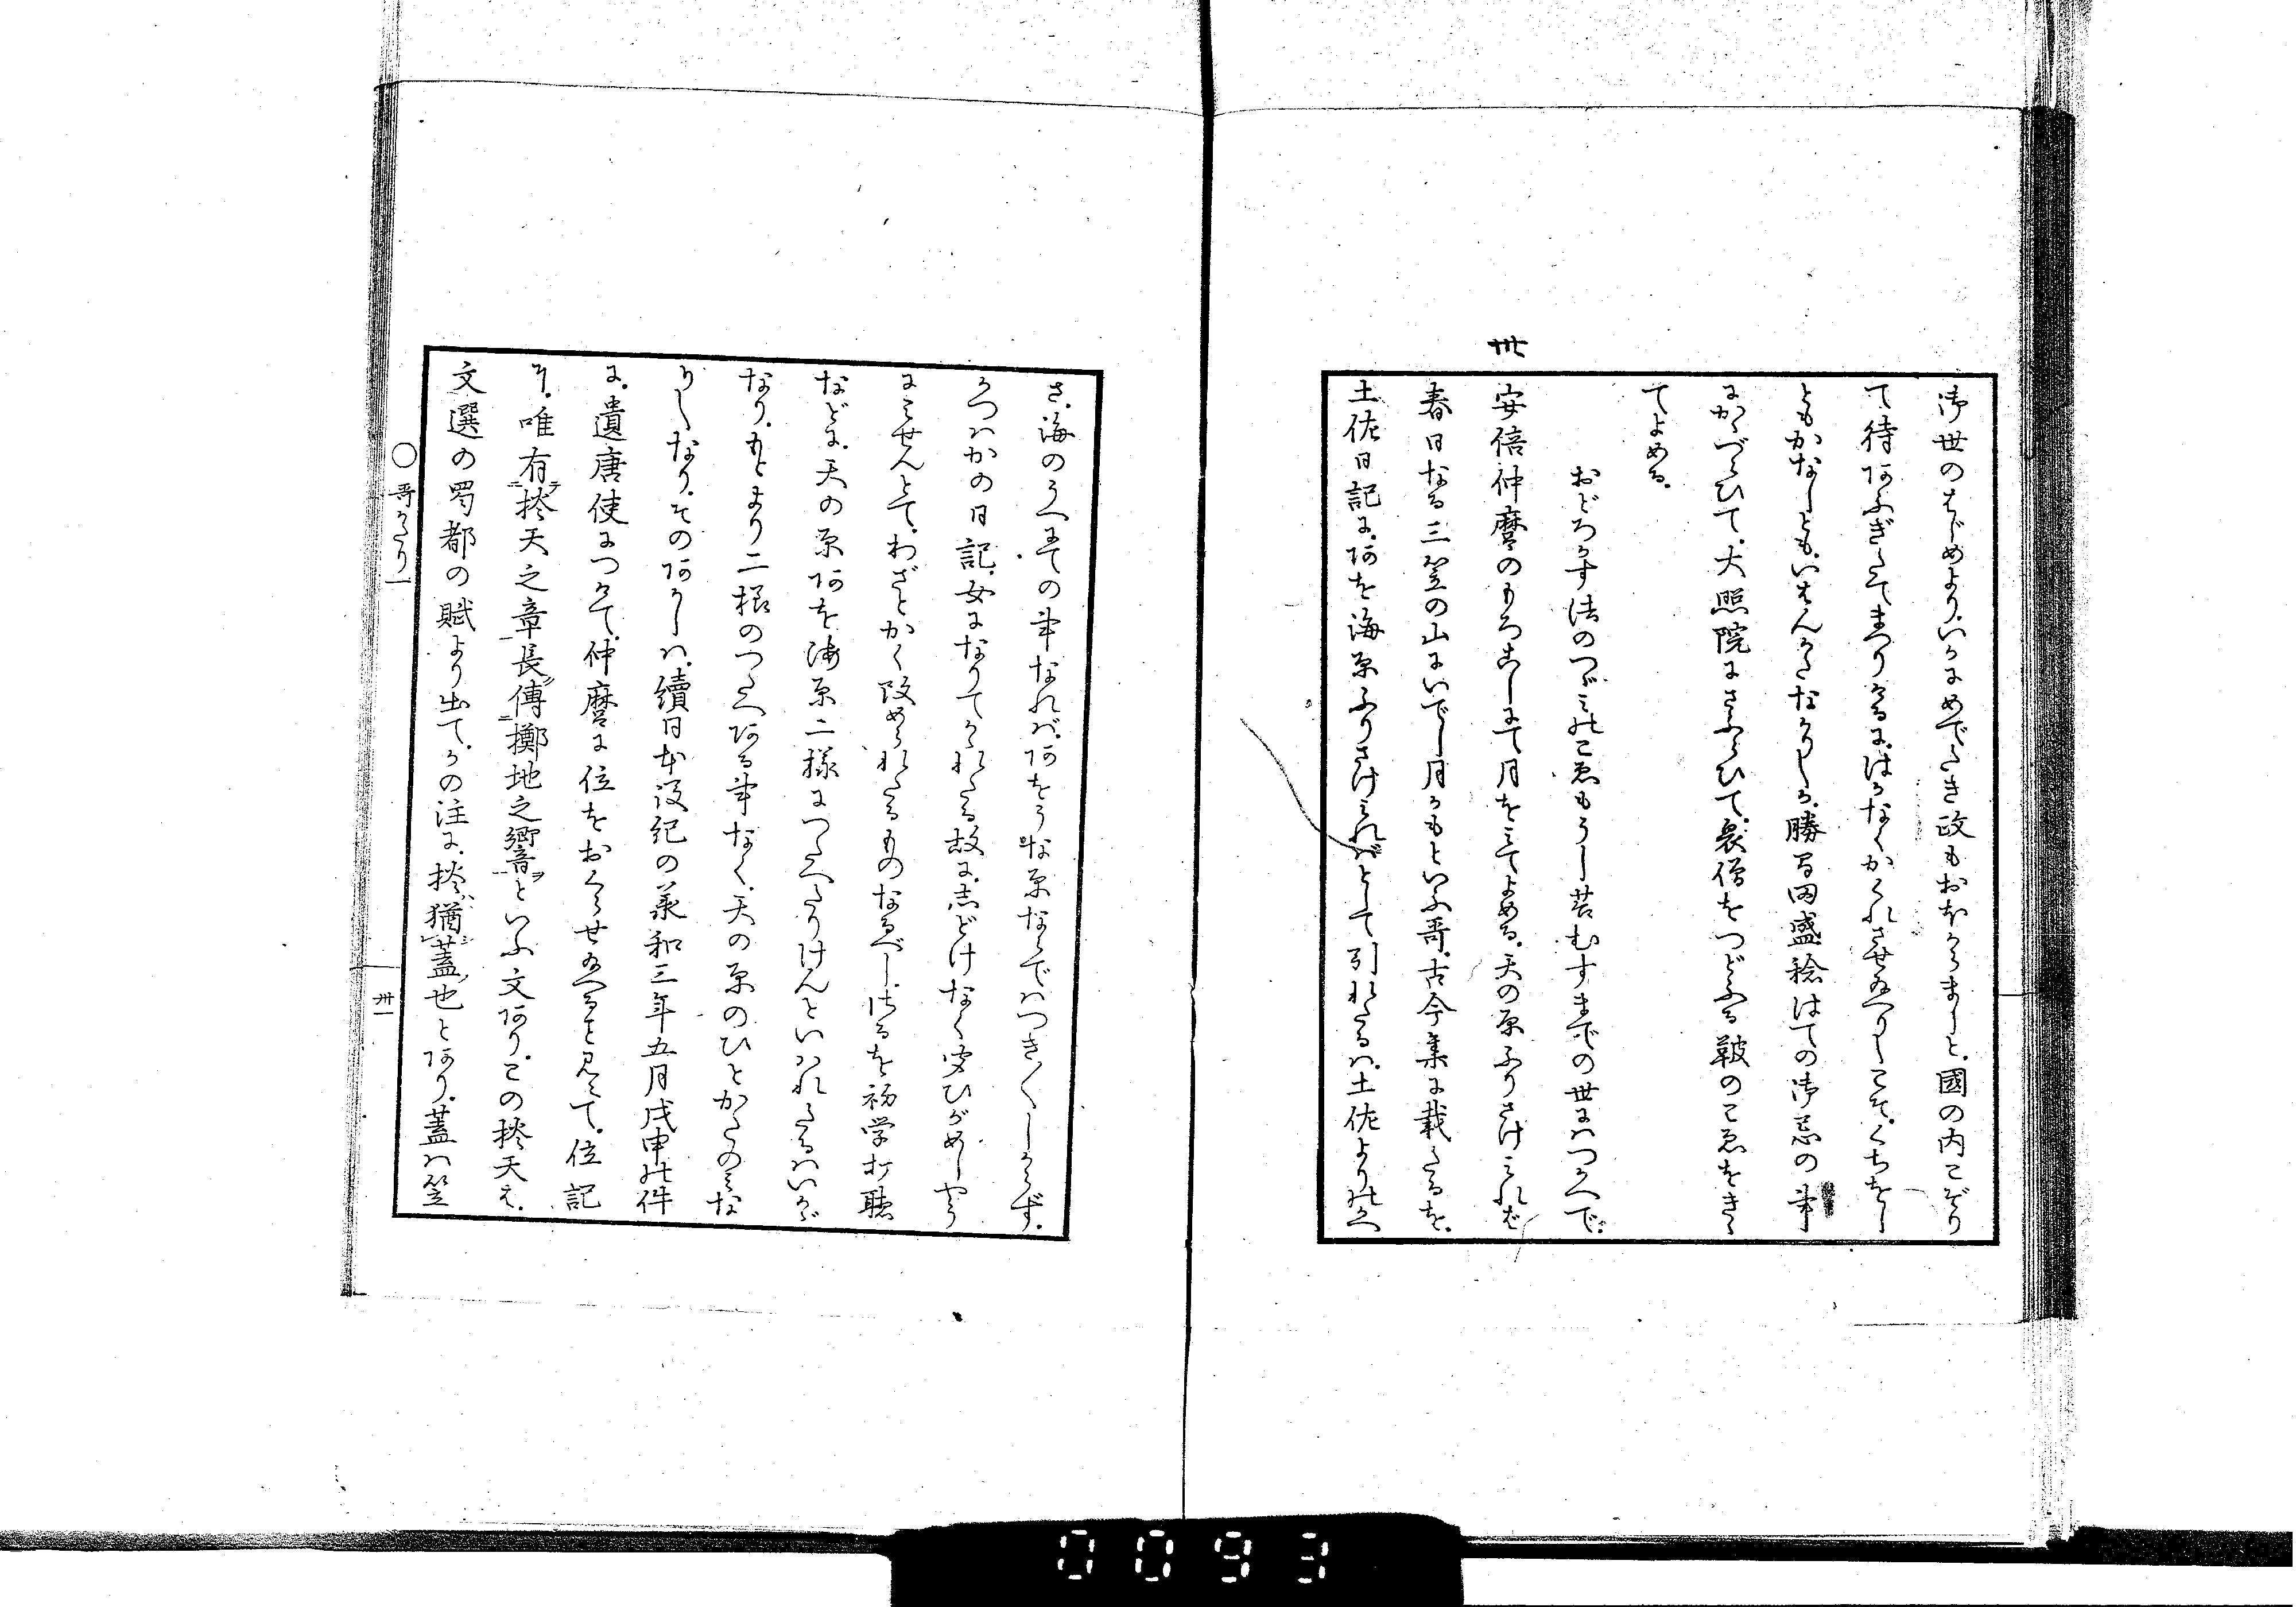 卅
御世のはじめより、いかにめでたき政もおほからましと、國の内こぞり
て待あふぎたてまつりけるに、はかなくかくれさせ給へりしこそ、くちをし
ともかなしとも、いはんかたなかりしか、勝間田盛稔はての御忌の事
にかゝづらひて、大照院にさふらひて、衆僧をつどふる鞁のこゑをきゝ
てよめる、
おどろかす法のつゞみのこゑもうし苔むすまでの世にはつかへで、
安倍仲麿のもろこしにて月をみてよめる、天の原ふりさけみれば
春日なる三笠の山にいでし月かもといふ哥、古今集に載たるを、
土佐日記に、あを海原ふりさけみればとて引れたるは、土佐よりのへ
さ、海のうへにての事なれば、あをうな原ならではつき〳〵しからず、
かつはかの日記、女になりてかゝれたる故に、志どけなく聞ひがめしやう
にみせんとて、わざとかく改められたるものなるべし、けるを初学打聴
などに、天の原あを海原二様につたへたりけんといはれたるはいかゞ
なり、もとより二様のつたへある事なく、天の原のひとかたのみな
りしなり、そのあかしは、續日本後紀の承和三年五月戊申の件
に、遣唐使につけて、仲麿に位をおくらせ給へると見えて、位記
に、唯有掞天之章長傳擲地之響といふ文あり、この掞天は、
文選の蜀都の賦より出て、かの注に、掞猶蓋也とあり、蓋は笠
〇哥かたり一
卅一
0093